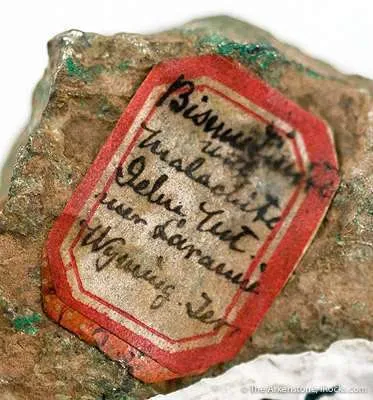 Bismutinite
with
Malachite
Jelm, Mt.
near Laramie
Wyoming. Ter
© The Arkenstone, iRocks.com